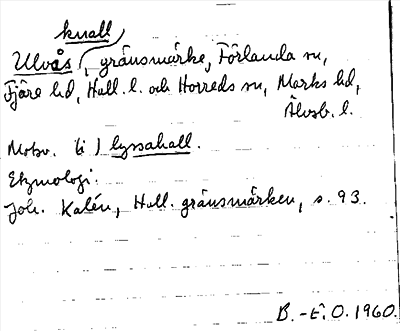 knall
Ulvås, gränsmärke, Förlanda sn,
Fjäre hd, Hall. l. och Horreds sn, Marks hd,
Älvsb. l.
Motsv. ti ) lyssahall.
Etymologi:
Joh. Kalén, Hall. gränsmärken, s. 93.
B.-E. O. 1960.